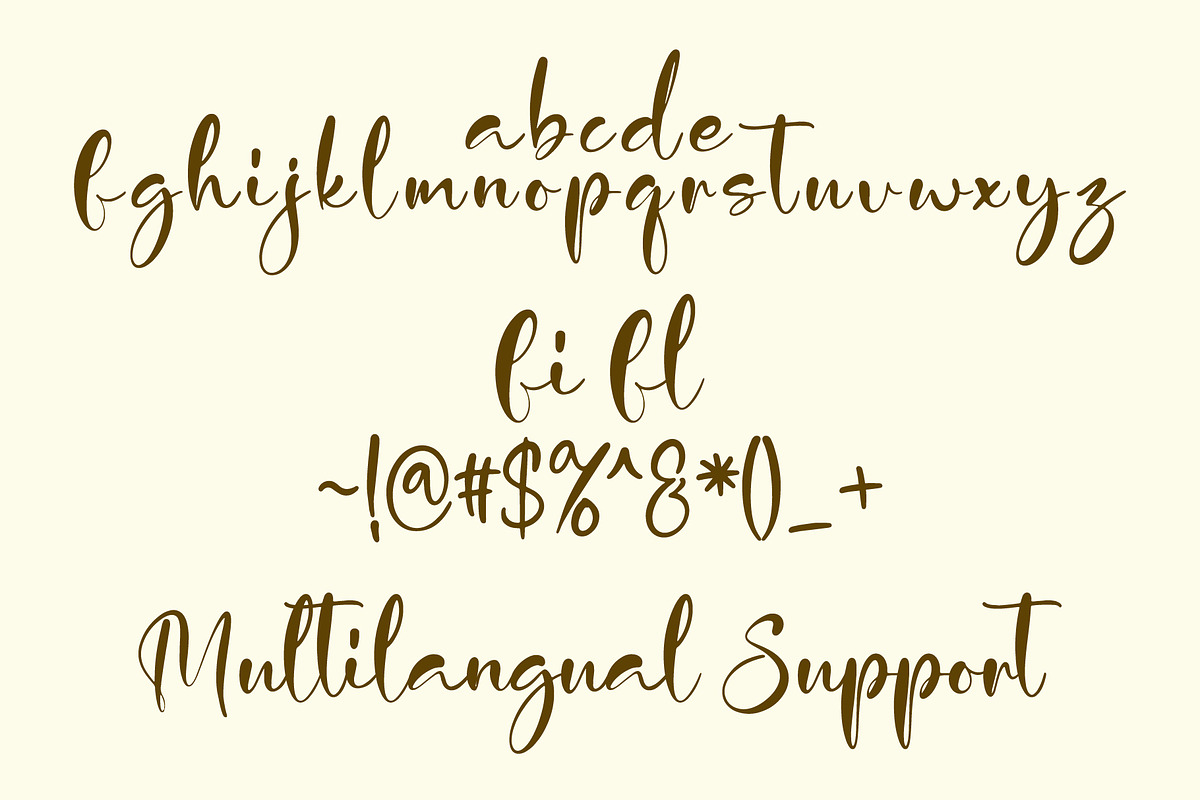 abcde
fghijklmnopqrstuvwxyz
fi fl
~!@#$%^&*()_+
Multilangual Support